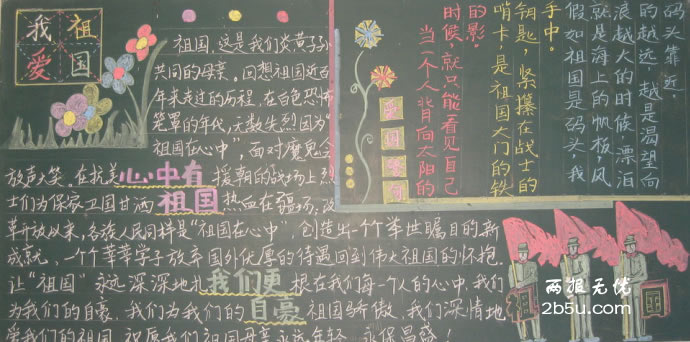 我祖
爱国
祖国，这是我们炎黄子孙
共同的母亲。回想祖国近百
年来走过的历程，在白色恐怖
笼罩的年代，无数先烈因为“
祖国在心中”，面对魔鬼会
放声大笑。在抗美援朝的战场上，烈
士们为保家卫国甘洒热血在疆场；改
革开放以来，各族人民同样是“祖国在心中”，创造出一个个举世瞩目的新
成就，一个个莘莘学子放弃国外优厚的待遇回到伟大祖国的怀抱。
让“祖国”永远深深地扎根在我们每一个人的心中，我们
为我们的自豪、我们为我们的祖国骄傲，我们深情地
爱我们的祖国，祝愿我们祖国母亲永远年轻，永保昌盛！
心中有
祖国
我们更
自豪
当一个人背向太阳的
时候，就只能看见自己
的影。
哨卡，是祖国大门的铁
钥匙，紧攥在战士的
手中。
假如祖国是码头，我
就是海上的帆板，风
浪越大的时候漂泊
的越远，越是渴望向
码头靠近
爱国
祖
国
两狠无忧
2b5u.com